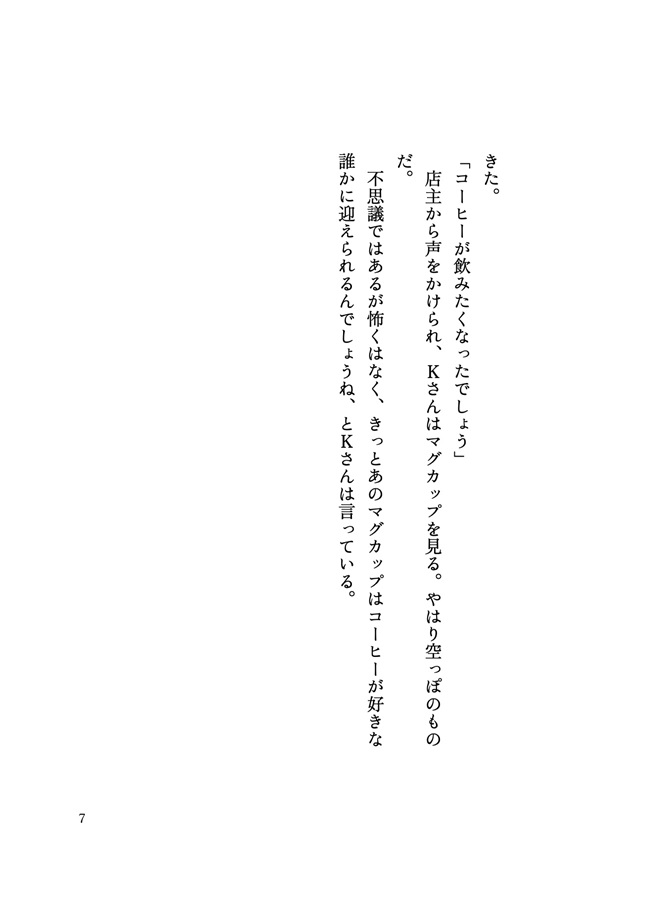 きた。
「コーヒーが飲みたくなったでしょう」
　店主から声をかけられ、Ｋさんはマグカップを見る。やはり空っぽのもの
だ。
　不思議ではあるが怖くはなく、きっとあのマグカップはコーヒーが好きな
誰かに迎えられるんでしょうね、とＫさんは言っている。
7